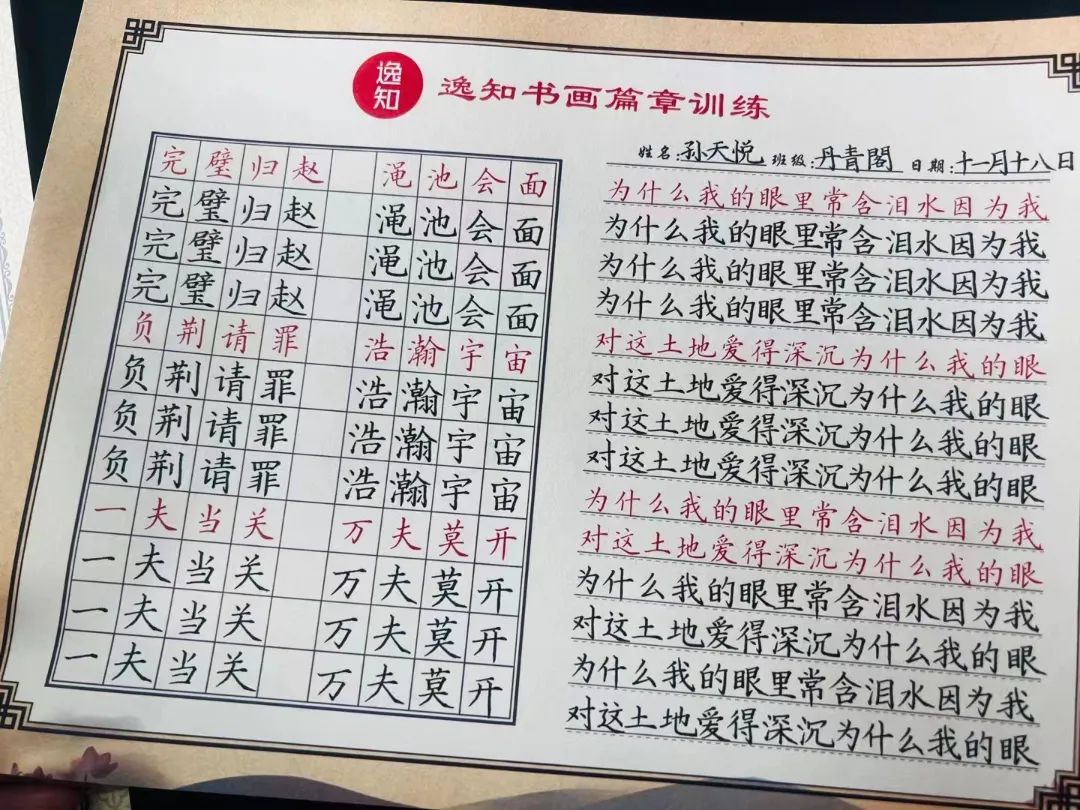 逸知
逸知书画篇章训练
姓名:孙天悦 班级:丹青閣 日期:十一月十八日
完璧归赵 渑池会面
完璧归赵 渑池会面
完璧归赵 渑池会面
完璧归赵 渑池会面
负荆请罪 浩瀚宇宙
负荆请罪 浩瀚宇宙
负荆请罪 浩瀚宇宙
负荆请罪 浩瀚宇宙
一夫当关 万夫莫开
一夫当关 万夫莫开
一夫当关 万夫莫开
一夫当关 万夫莫开
为什么我的眼里常含泪水因为我
为什么我的眼里常含泪水因为我
为什么我的眼里常含泪水因为我
为什么我的眼里常含泪水因为我
对这土地爱得深沉为什么我的眼
对这土地爱得深沉为什么我的眼
对这土地爱得深沉为什么我的眼
对这土地爱得深沉为什么我的眼
为什么我的眼里常含泪水因为我
对这土地爱得深沉为什么我的眼
为什么我的眼里常含泪水因为我
对这土地爱得深沉为什么我的眼
为什么我的眼里常含泪水因为我
对这土地爱得深沉为什么我的眼